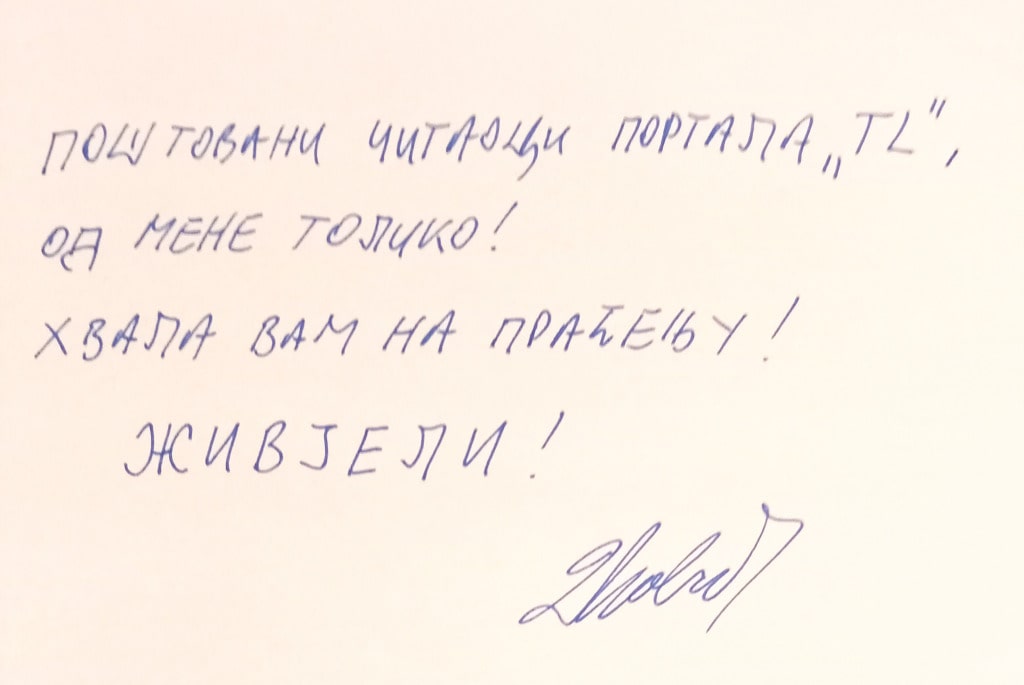 ПОШТОВАНИ ЧИТАОЦИ ПОРТАЛА „TL”,
ОД МЕНЕ ТОЛИКО!
ХВАЛА ВАМ НА ПРАЋЕЊУ!
ЖИВЈЕЛИ!